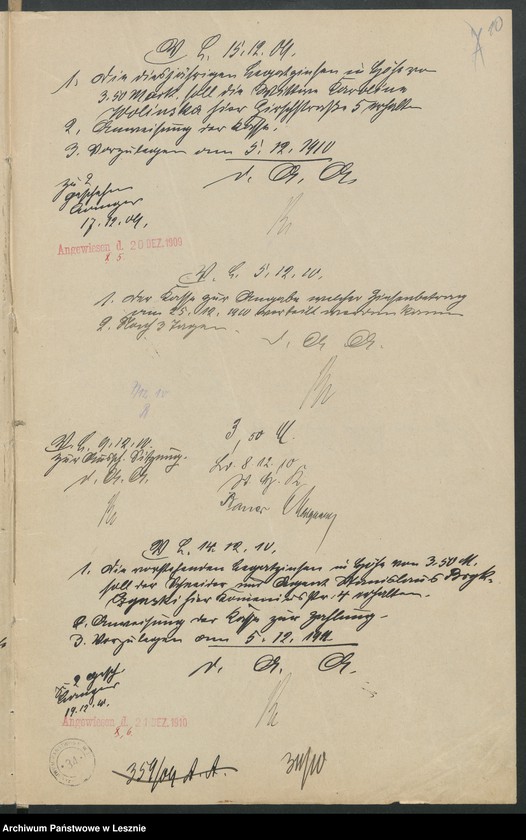 10
V. L. 15.12.09.
1. Die diesjährigen Legatzinsen in Höhe von
3.50 Mark soll die Wittwe Karoline
Wolinska hier Hirschstraße 5 erhalten
2. Anweisung der Kasse.
3. Vorzulegen am 5.12.1910
D. A. A.
zu 2
geschehen
17.12.09.
Angewiesen d. 20 DEZ. 1909
X. 5
V. L. 5.12.10.
1. Der Kasse zur Angabe welcher Zinsenbetrag
am 25.12.1910 verteilt werden kann
2. Nach 3 Tagen.
D. A. A.
3,50 M.
V. L. 9.12.10.
zur Sitzung.
D. A. A.
8 12.10
V. L. 14.12.10.
1. Die vorstehenden Legatzinsen in Höhe von 3.50 M.
soll der Schneider und Agent Stanislaus
hier Komeniusstr. 4 erhalten.
2. Anweisung der Kasse zur Zahlung.
3. Vorzulegen am 5.12.1911
D. A. A.
2 gesch.
19.12.10.
Angewiesen d. 21 DEZ. 1910
X. 6
359/09 A. A.
Archiwum Państwowe w Lesznie